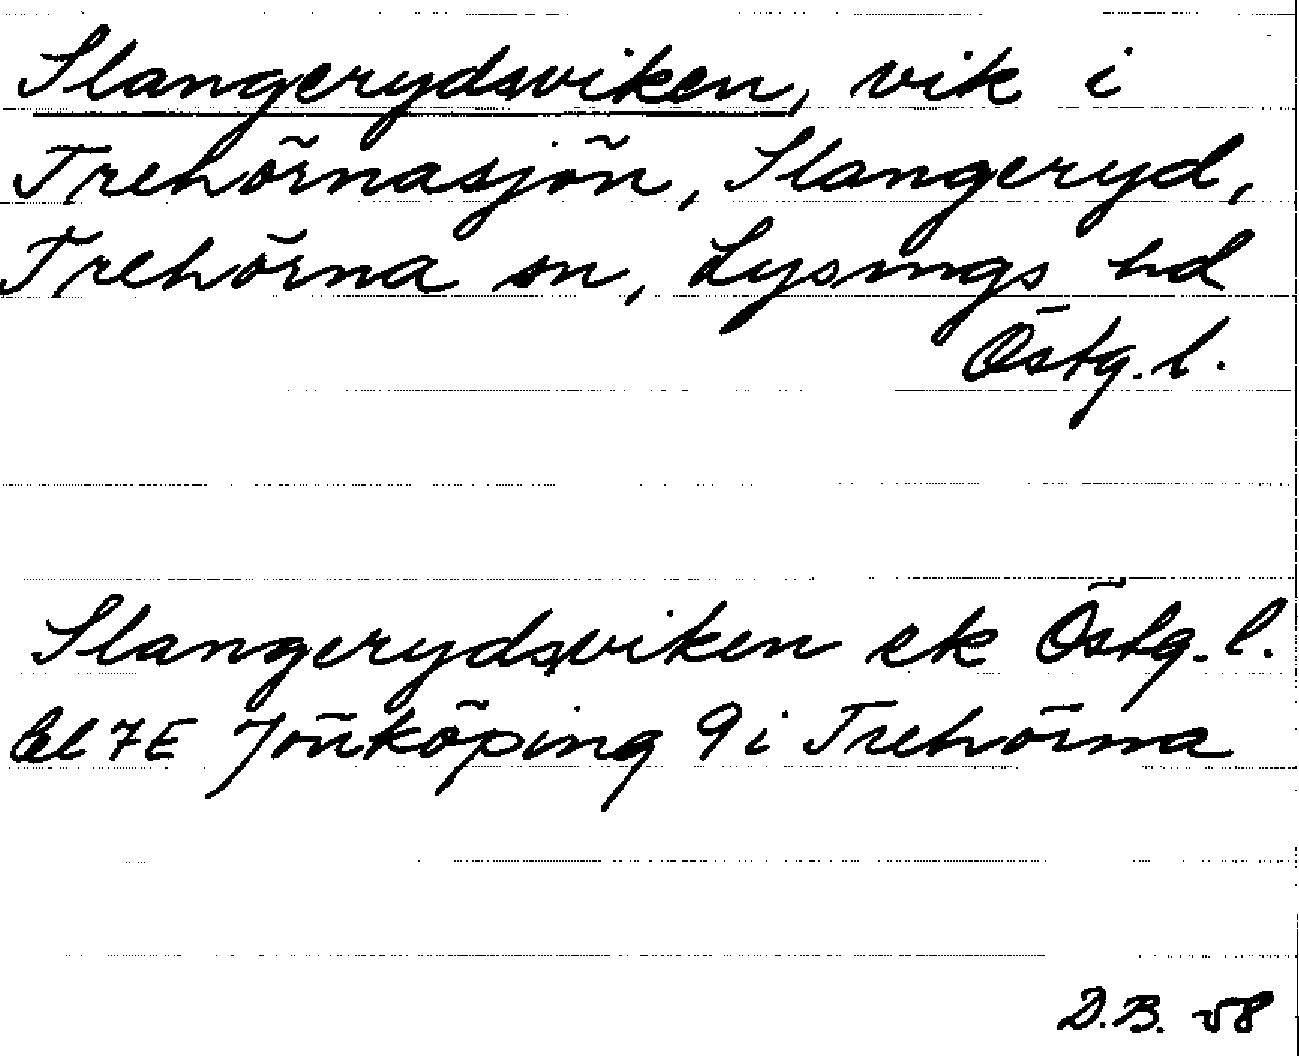 Slangerydsviken, vik i
Trehörnasjön, Slangeryd,
Trehörna sn, Lysings hd
Östg. l.
Slangerydsviken ek Östg. l.
bl 7E Jönköping 9i Trehörna
D.B. 58